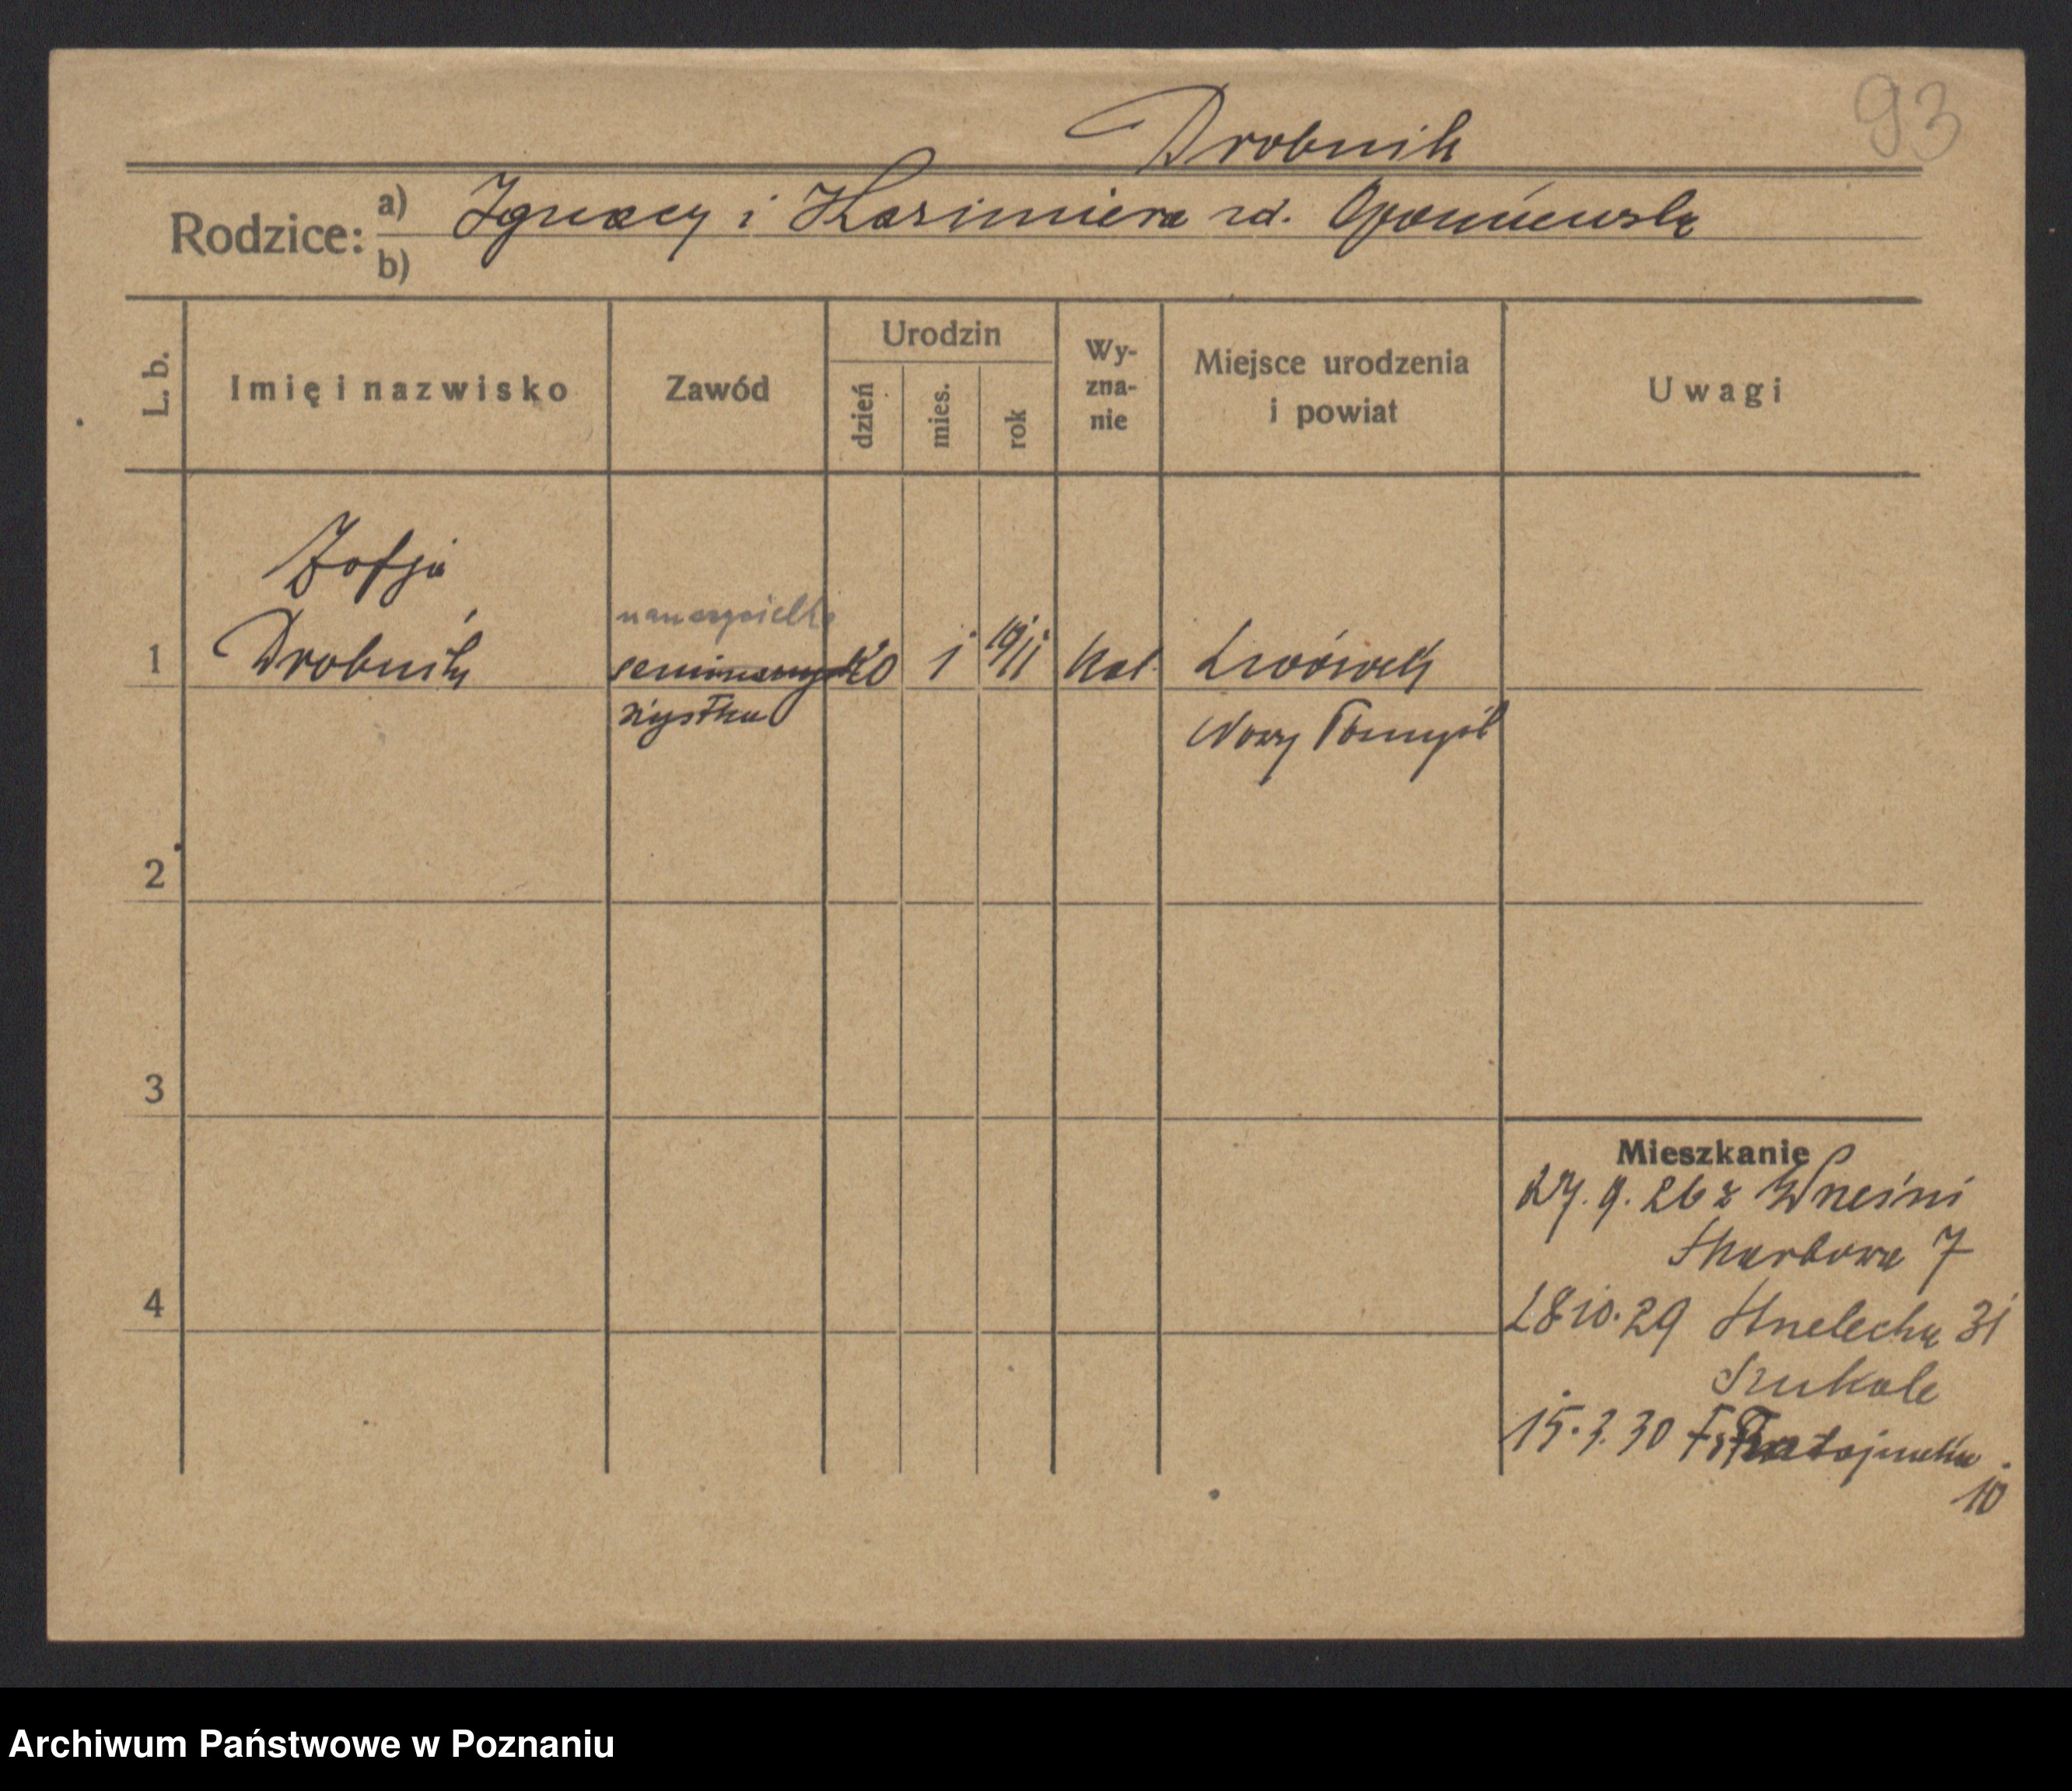 93
Drobnik
Rodzice: a) Ignacy i Kazimiera zd.
b)
L. b.
Imię i nazwisko
Zawód
Urodzin
dzień
mies.
rok
Wy-
zna-
nie
Miejsce urodzenia
i powiat
Uwagi
Zofja
nauczycielka
1 Drobnik seminarzy 20 1 1911 kat. Lwówek
zystka Nowy Tomyśl
2
3
4
Mieszkanie
27.9.26 z Wrześni
Skarbowa 7
28.10.29 Strzelecka 31
15.3.30 Fr. Ratajczaka
10
Archiwum Państwowe w Poznaniu